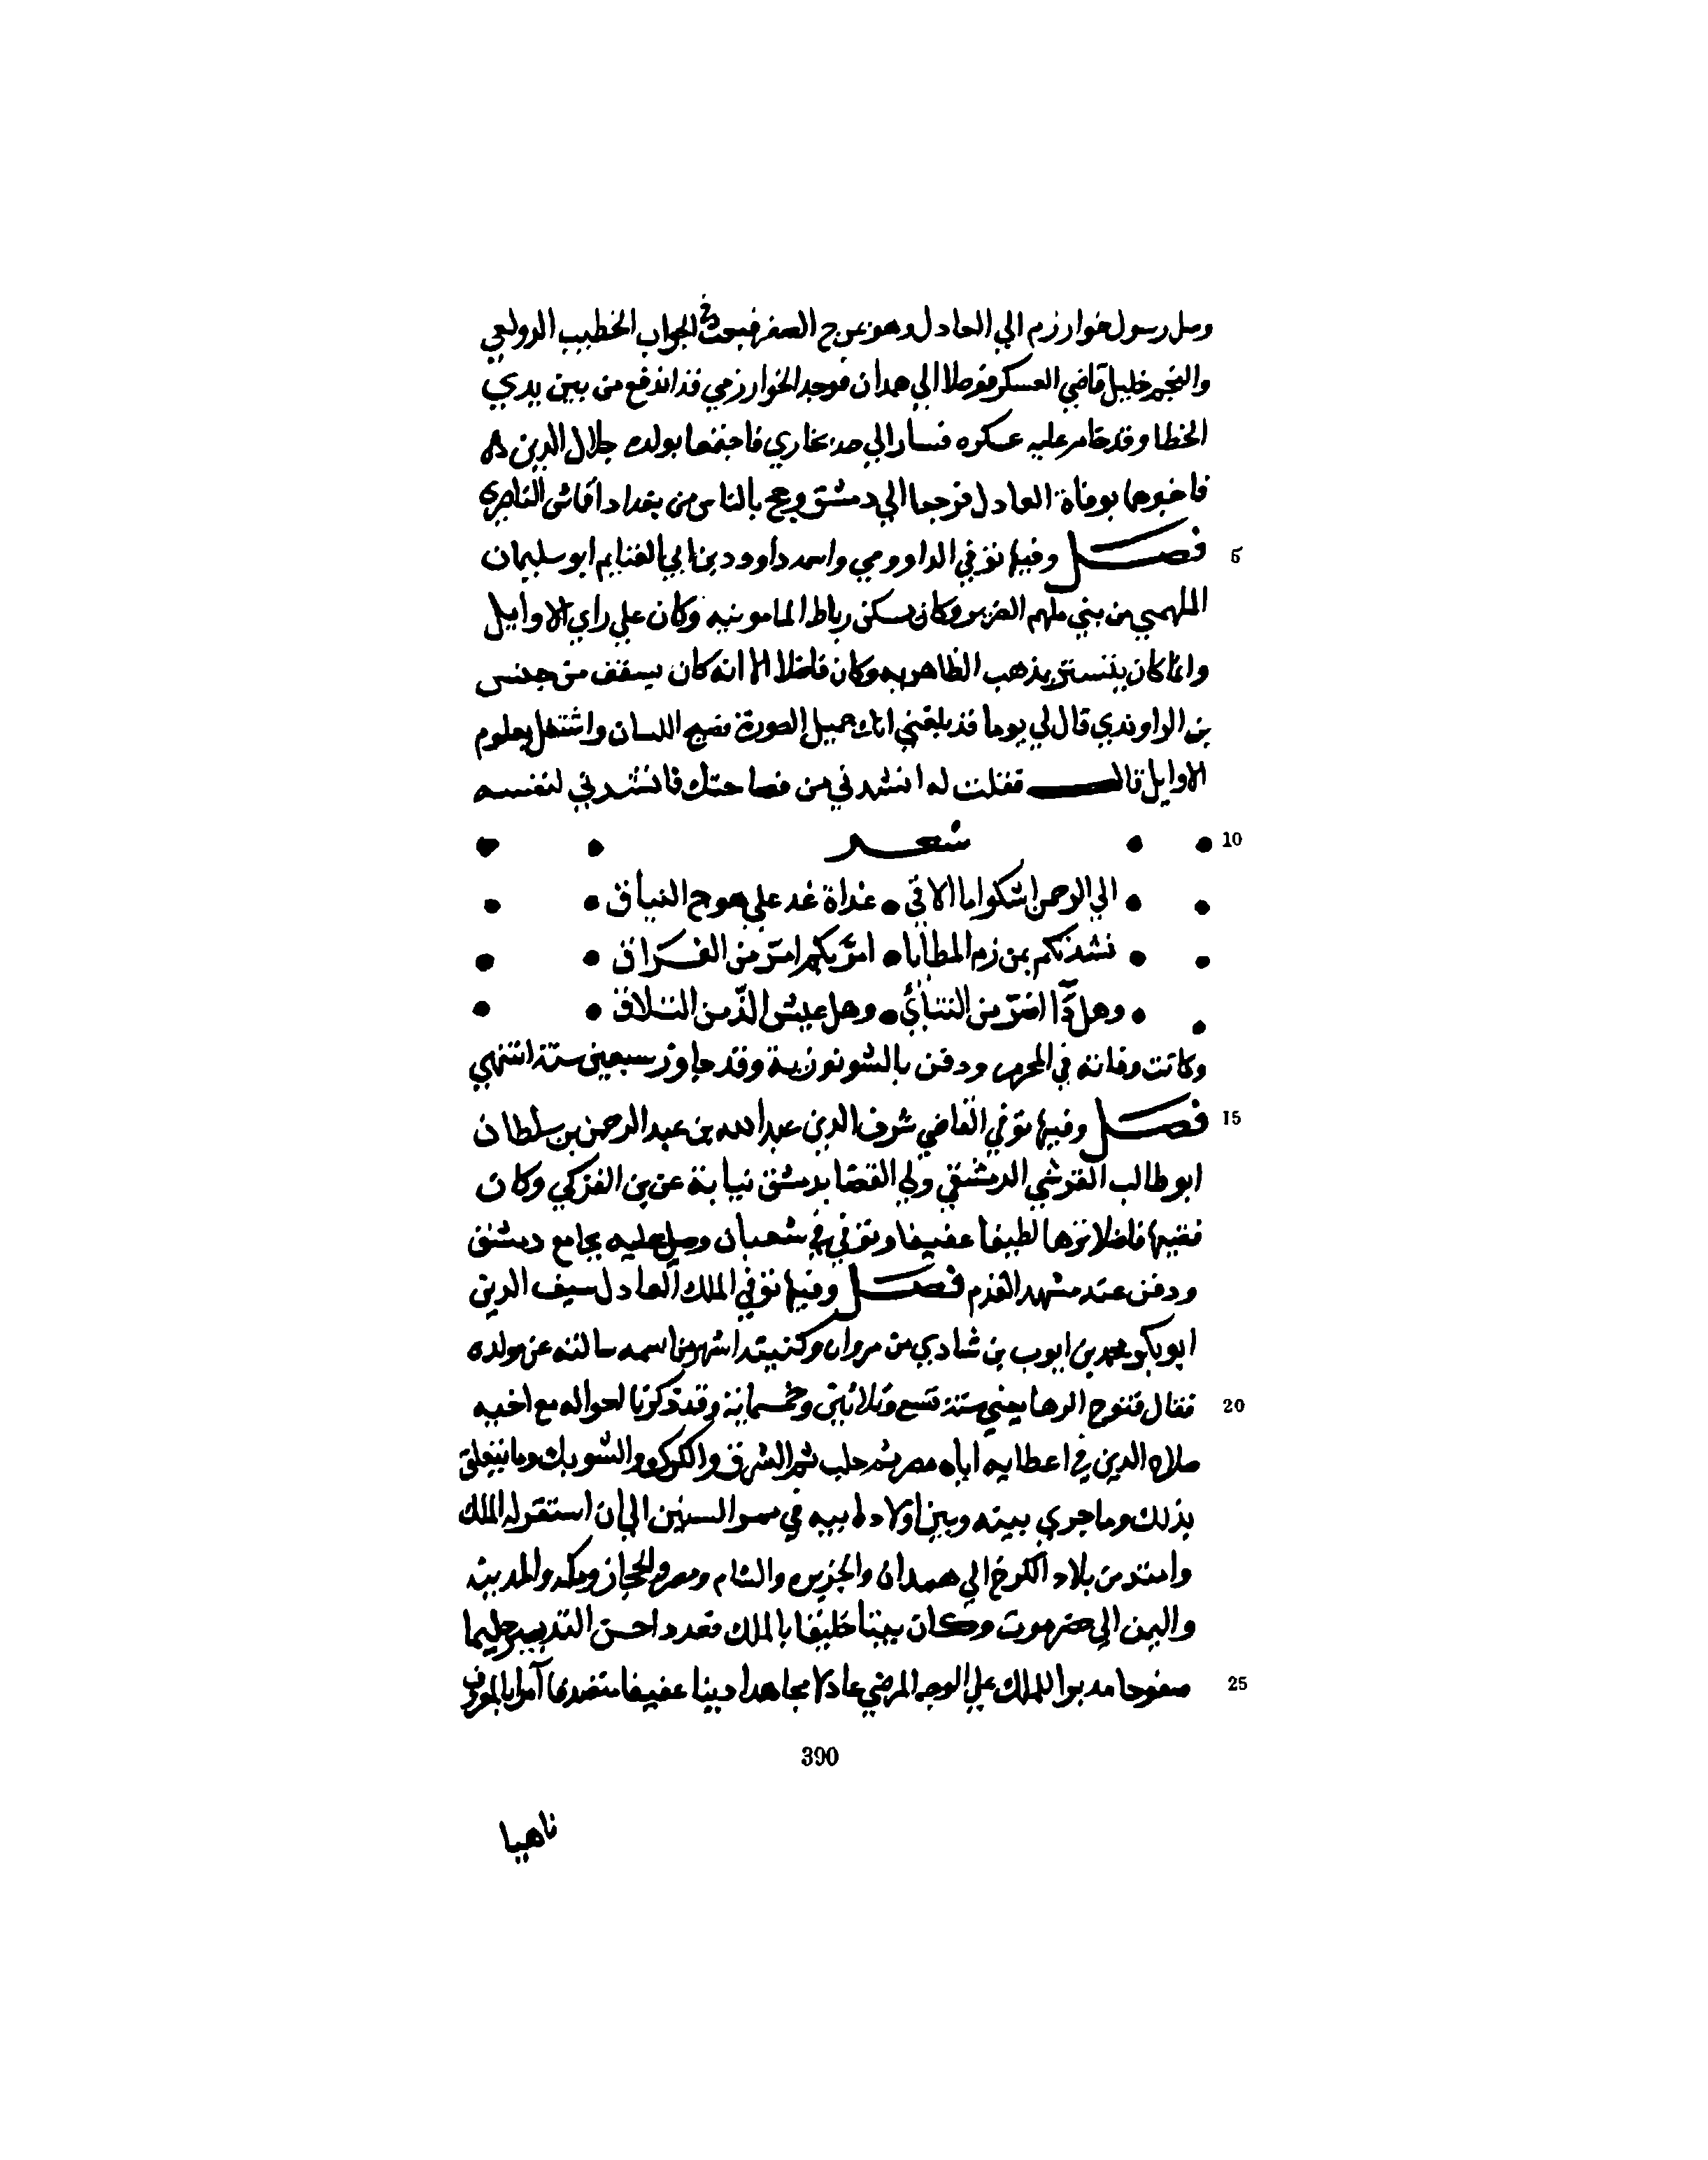 وصل رسول خوارزم الي العادل وهو بمرج الصفر فبعث في الجواب الخطيب الدولعي
والنجم خليل قاضي العسكر فوصلا الي همدان فوجد الخوارزمي قد اندفع من بين يدي
الخطا وقد خامر عليه عسكره فسار الي حد بخاري فاجتمعا بولده جلال الدين
فاخبرهما بوفاة العادل فرجعا الي دمشق وحج بالناس من بغداد اقباش الناصري
فصل وفيها توفي الداوودي واسمه داوود بن ابي الغنايم ابو سليمان
5
الملهمي من بني ملهم الضرير وكان يسكن رباط المامونيه وكان علي راي الاوايل
وانما كان يتستر بمذهب الظاهريه وكان فاضلا الا انه كان من جنس
بن الراوندي قال لي يوما قد بلغني انك جميل الصورة فصيح اللسان واشتغل بعلوم
الاوايل قال فقلت له انشدني من فصاحتك فانشدني لنفسه
شعر
10
الي الرحمن اشكوا ما الاقي • غداة غد علي هوج النياق
نشدتكم بمن زم المطايا • امر بكم امر من الفراق
وهل دآ اضر من التنآئي • وهل عيش الذ من التلاق
وكانت وفاته في المحرم ودفن بالشونوزية وقد جاوز سبعين سنة انتهي
فصل وفيها توفي القاضي شرف الدين عبد الله بن عبد الرحمن بن سلطان
15
ابو طالب القرشي الدمشقي ولي القضا بدمشق نيابة عن بن الزكي وكان
فقيها فاضلا نزها لطيفا عفيفا وتوفي في شعبان وصلي عليه بجامع دمشق
ودفن عند مشهد القدم فصل وفيها توفي الملك العادل سيف الدين
ابو بكر محمد بن ايوب بن شادي بن مروان وكنيته اشهر من اسمه سالته عن مولده
فقال فتوح الرها يعني سنة تسع وثلاثين وخمسماية وقد ذكرنا احواله مع اخيه
20
صلاح الدين في اعطايه اياه مصر ثم حلب ثم الشرق والكرك والشوبك وما يتعلق
بذلك وما جري بينه وبين اولاد اخيه في ممر السنين الي ان استقر له الملك
وامتد من بلاد الكرج الي همدان والجزيره والشام ومصر والحجاز ومكه والمدينه
واليمن الي حضرموت وكان خليقا بالملك احسن التدبير حليما
صفوحا مدبرا للملك علي الوجه المرضي عادلا مجاهدا دينا عفيفا متصدقا آمرا بالمعروف
25
390
ناهيا